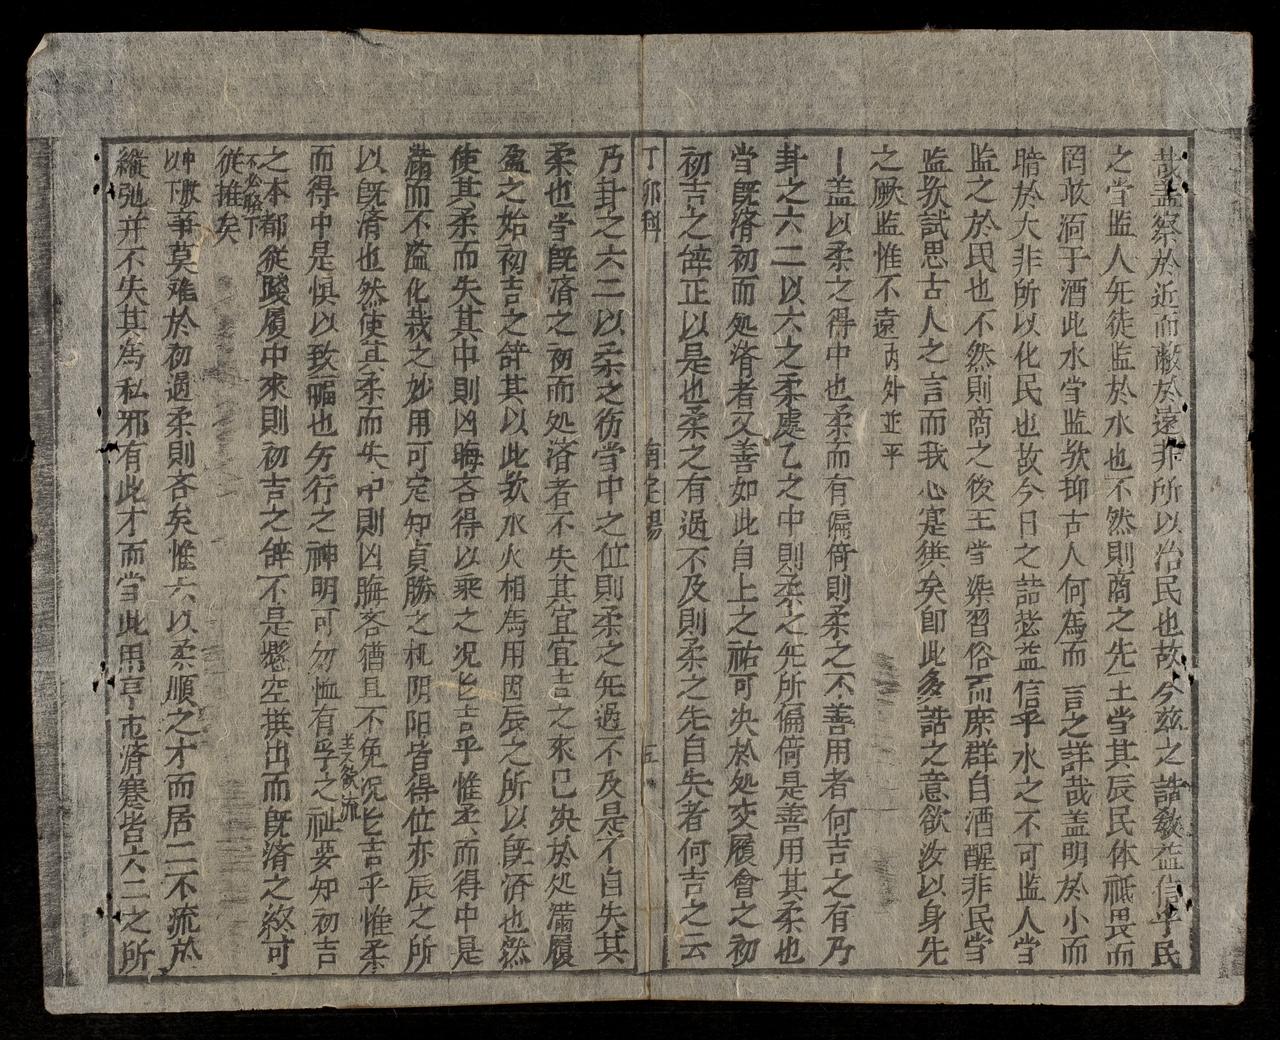 哉盖察於近而蔽於遠非所以治民也故今茲之誥教益信乎民
之當监人旡徒监於水也不然則商之先王當其辰民体祗畏而
罔敢湎于酒此水當监欤抑古人何爲而言之詳哉盖明於小而
暗於大非所以化民也故今日之誥愁益信乎水之不可监人當
监之於民也不然則商之後王當染習俗而庶群自酒腥非民當
监欤試思古人之言而我心寔獲矣即此多誥之意欲汝以身先
之厥监惟不遠 内外並平
盖以柔之得中也柔而有偏倚則柔之不善用者何吉之有乃
卦之六二以六之柔處乙之中則柔之旡所偏倚是善用其柔也
當既濟初而处濟者又善如此自上之祐可决於处交履會之初
初吉之辞正以是也柔之有過不及則柔之先自失者何吉之云
丁卯科 五
乃卦之六二以柔之彷當中之位則柔之旡過不及是不自失其
柔也當既濟之初而处濟者不失其宜宜吉之來已决於处滿履
盈之始初吉之辞其以此欤水火相爲用因辰之所以既濟也然
使其柔而失其中則凶晦吝得以乘之况乜吉乎惟柔而得中是
滿而不溢化裁之妙用可定知貞勝之机阴阳皆得位亦辰之所
以既濟也然使其柔而失中則凶晦吝猶且不免况乜吉乎惟柔
而得中是惧以致福也旁行之神明可勿恤有孚之祉要知初吉
之本都從踐履中來則初吉之辞不是懸空撰出而既濟之效可
從推矣
以下爭莫难於初過柔則吝矣惟六以柔順之才而居二不流於
縱弛并不失其爲私邪有此才而當此用亨屯濟蹇皆六二之所